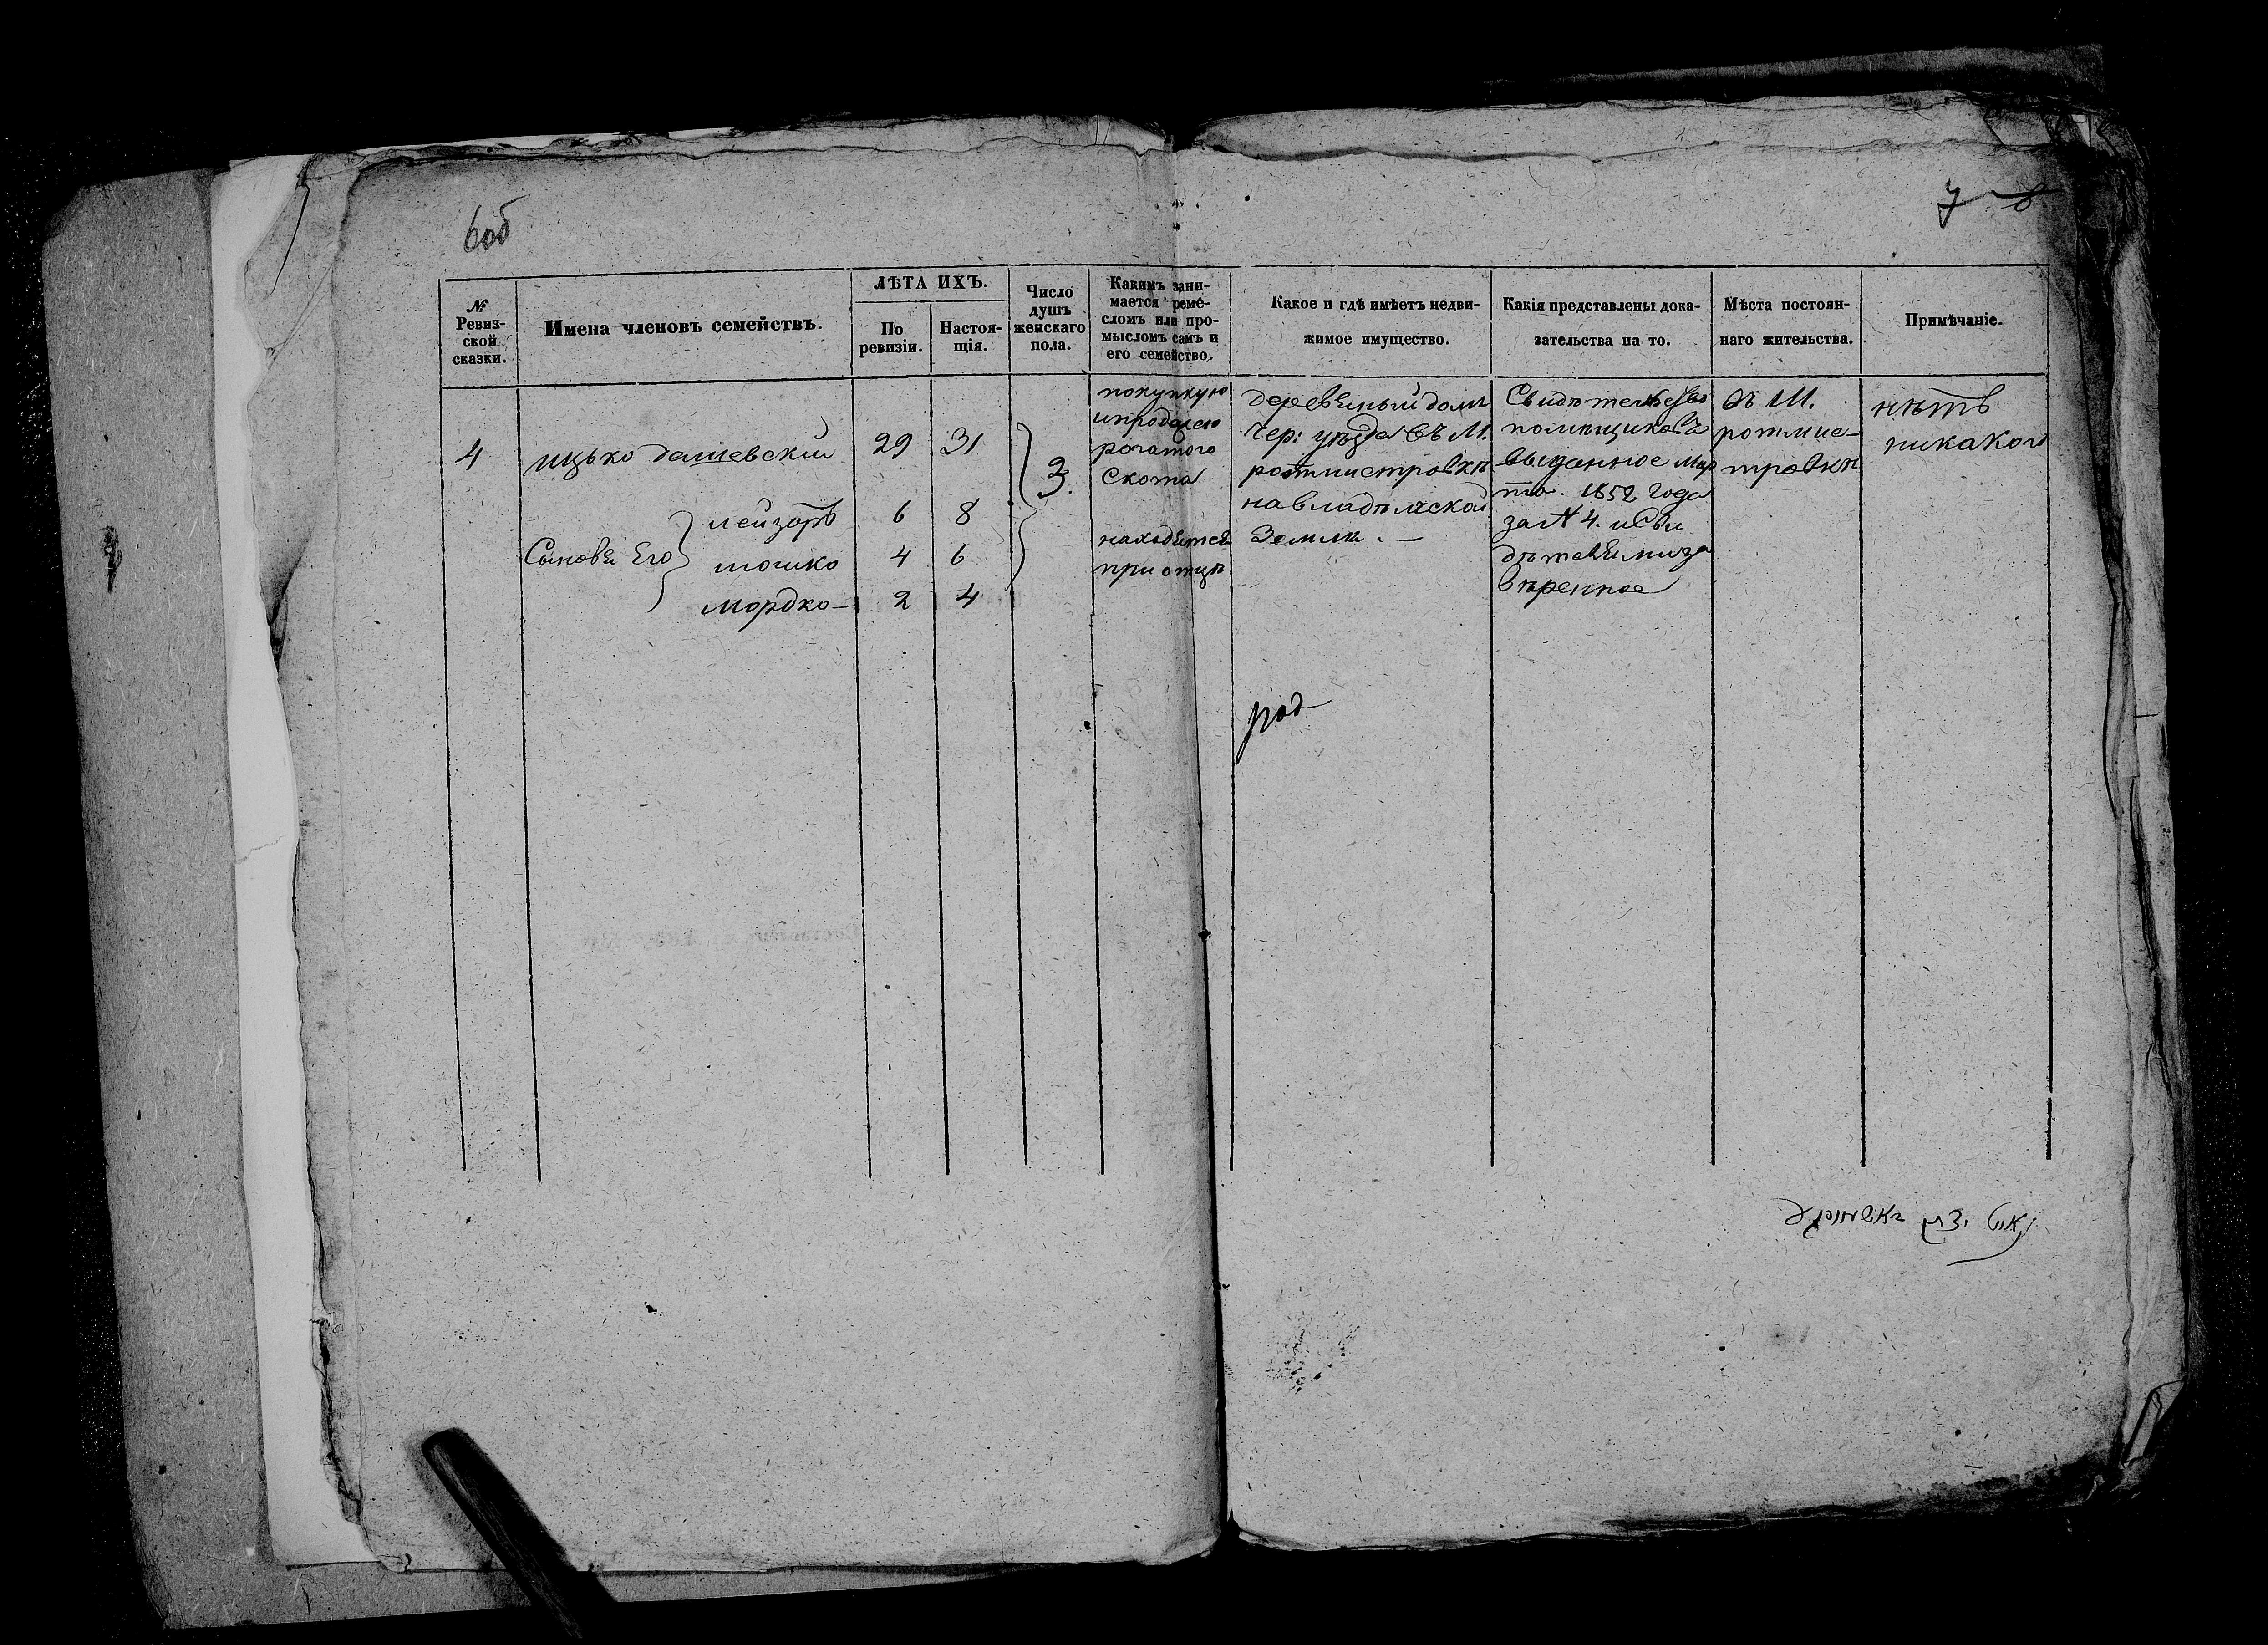 6об
7 8
№ Ревиз-
ской
сказки.
Имена членовъ семействъ.
ЛѢТА ИХЪ.
По
ревизіи.
Настоя-
щія.
Число
душъ
женскаго
пола.
Какимъ зани-
мается реме-
сломъ или про-
мысломъ самъ и
его семейство.
Какое и гдѣ имѣетъ недви-
жимое имущество.
Какія представлены дока-
зательства на то.
Мѣста постоян-
наго жительства.
Примѣчаніе.
4 ицько дашевскій 29 31
3.
покупкую
ипродажею
рогатого
скота
деревяный домъ
Чер: уѣзда въ М.
ротмистровкѣ
на владѣлческой
Землѣ. —
Свидѣтельство
помѣщиковъ
выданное мар
та 1852 года
за № 4. и
вѣренное
въ М.
ротмис-
тровки
нѣтъ
никакого
Сыновя Его
лейзоръ 6 8
мошко 4 6
мордко — 2 4
находятся
при отцѣ
род